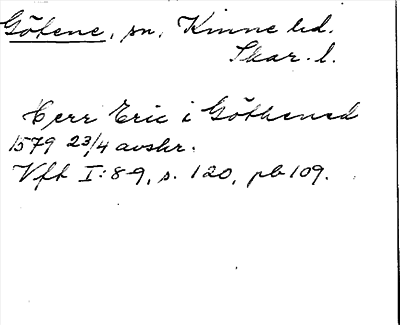 Götene, sn, Kinne hd.
Skar. l.
Herr Eric i Göthened
1579 23/4 avskr.
Vft I:8-9, s. 120, pb 109.